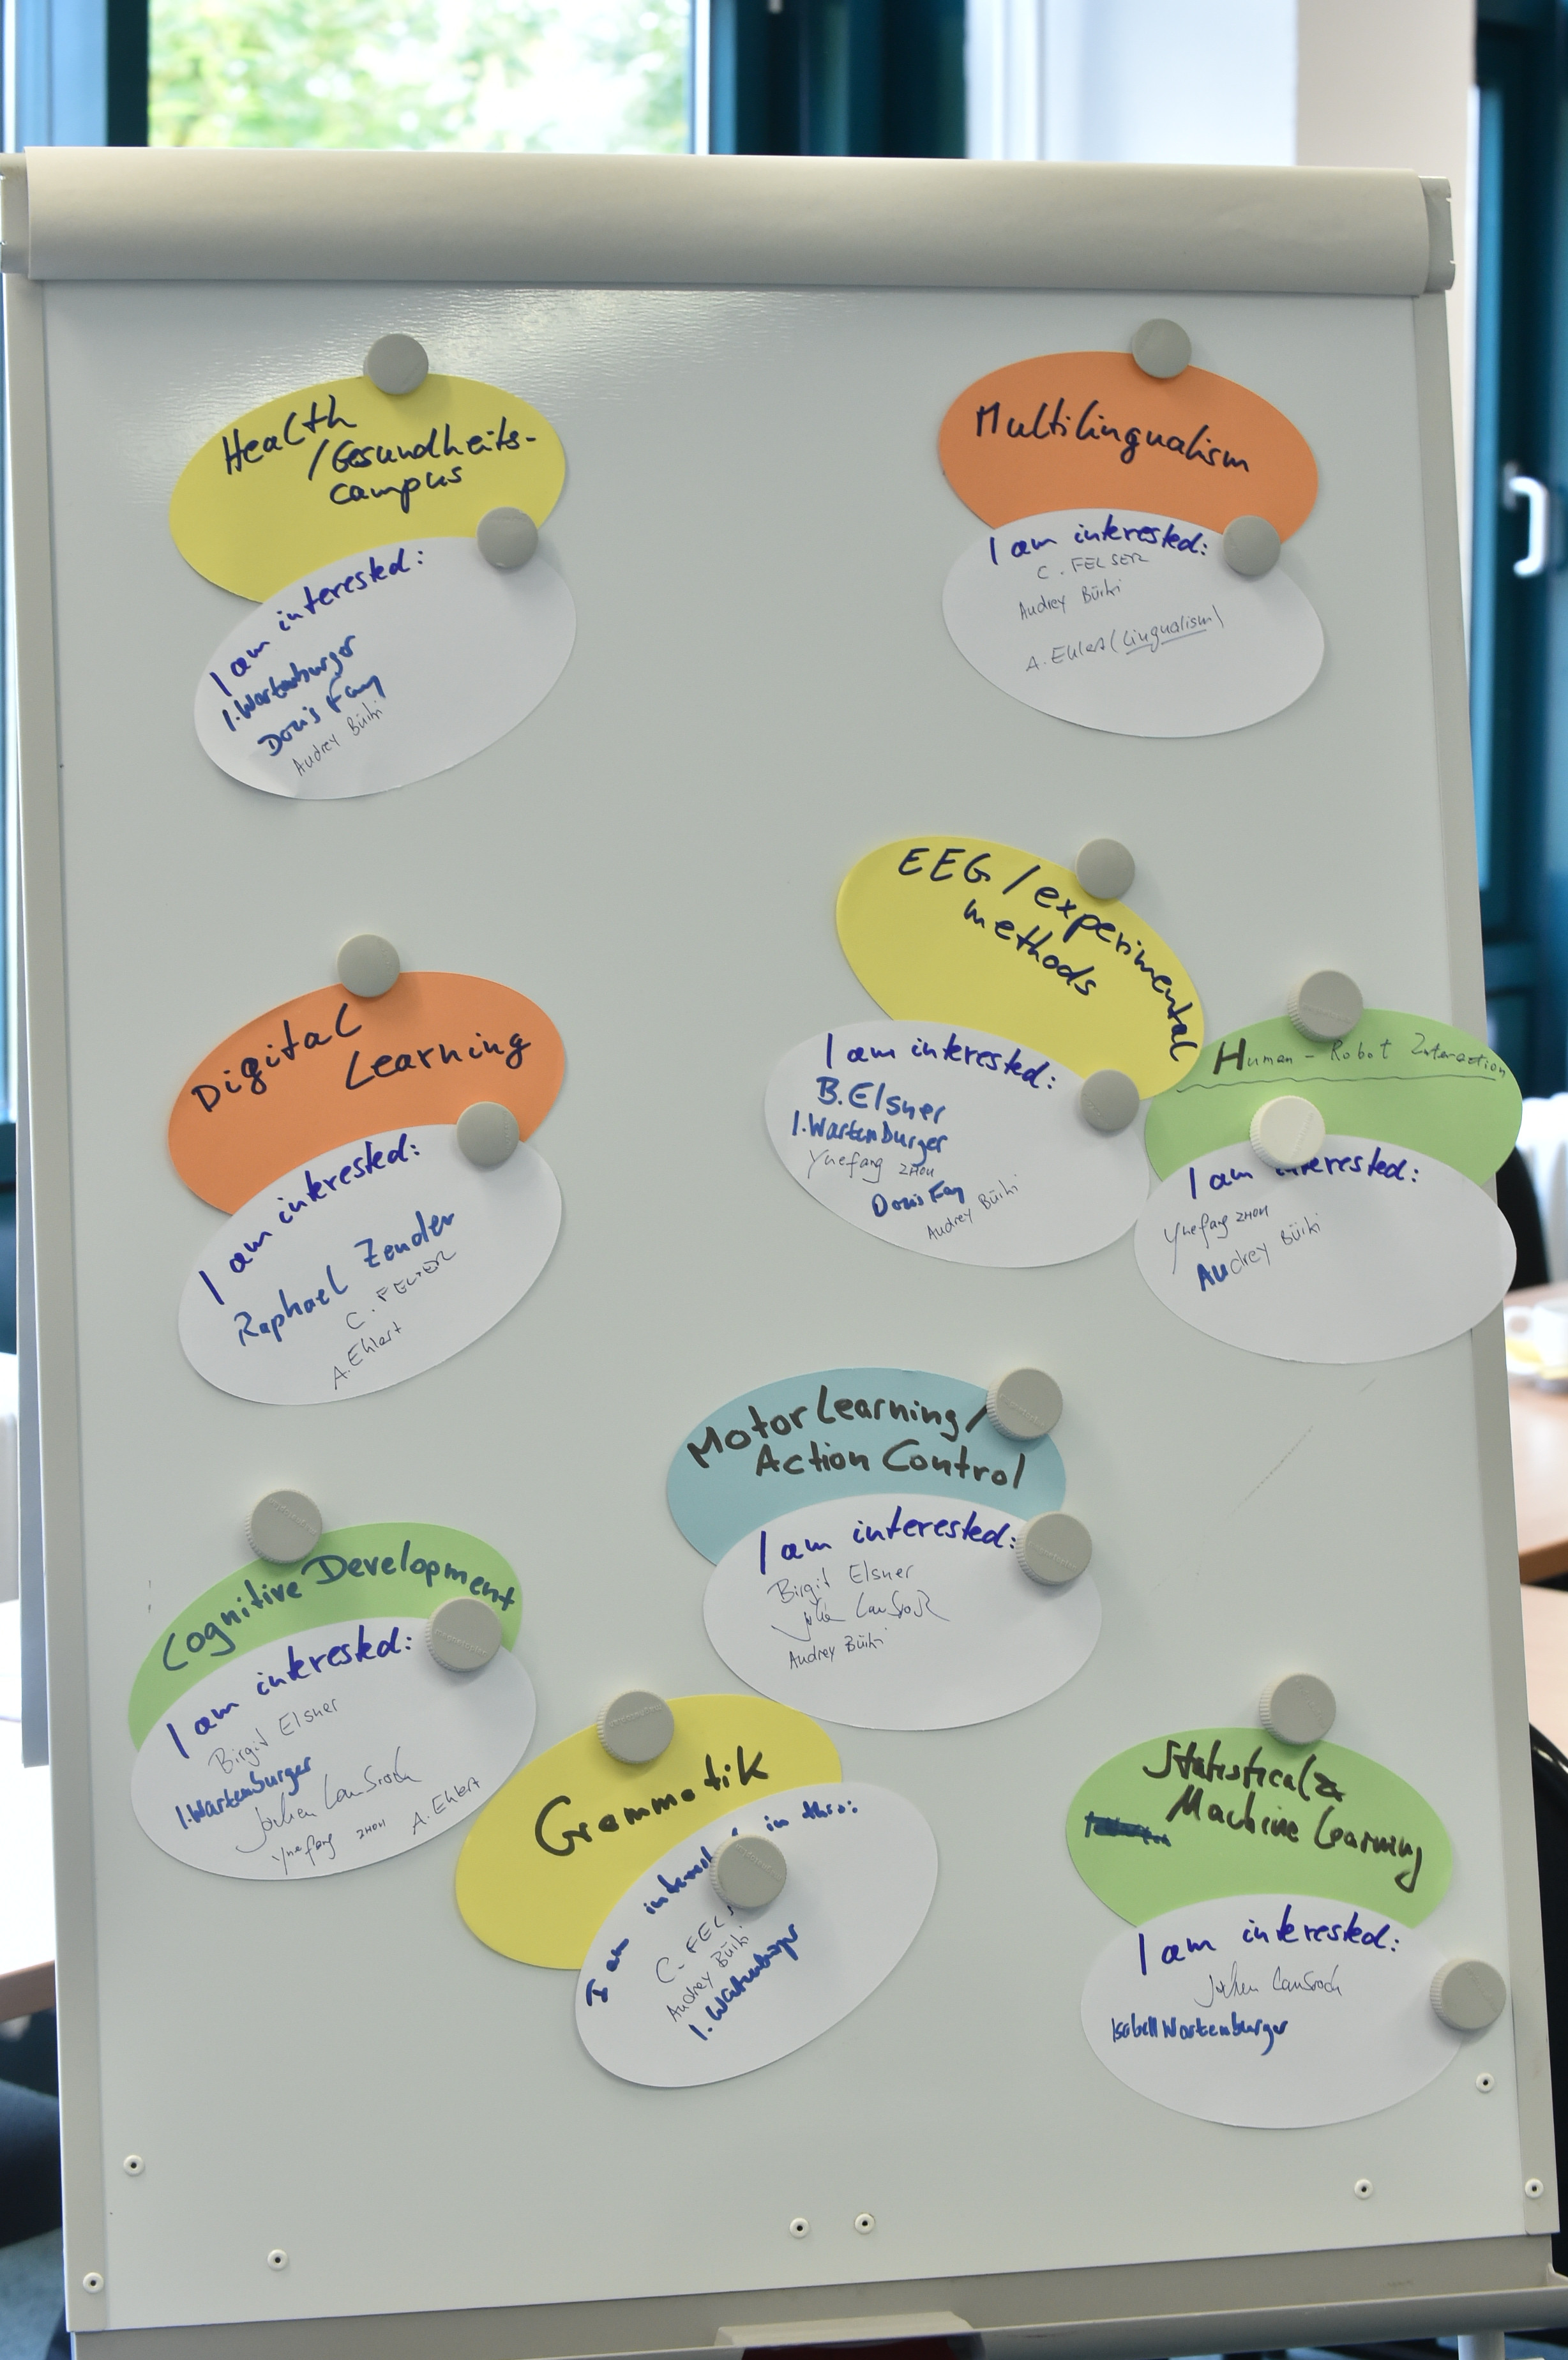 Health
/Gesundheits-
campus
I am interested:
I. Wartenburger
Doris Fay
Audrey Bürki
Multilingualism
I am interested:
C. FELSER
Audrey Bürki
A. Ehlert (Lingualism)
EEG / experimental
methods
I am interested:
B. Elsner
I. Wartenburger
Yuefang ZHOU
Doris Fay
Audrey Bürki
Human - Robot Interaction
I am interested:
Yuefang ZHOU
Audrey Bürki
Digital
Learning
I am interested:
Raphael Zender
C. FELSER
A. Ehlert
Motor Learning/
Action Control
I am interested:
Birgit Elsner
Audrey Bürki
Cognitive Development
I am interested:
Birgit Elsner
I. Wartenburger
Yuefang ZHOU A. Ehlert
Grammatik
I am interested in this:
C. FELS
Audrey Bürki
I. Wartenburger
Statistical &
Machine Learning
I am interested:
Isabell Wartenburger